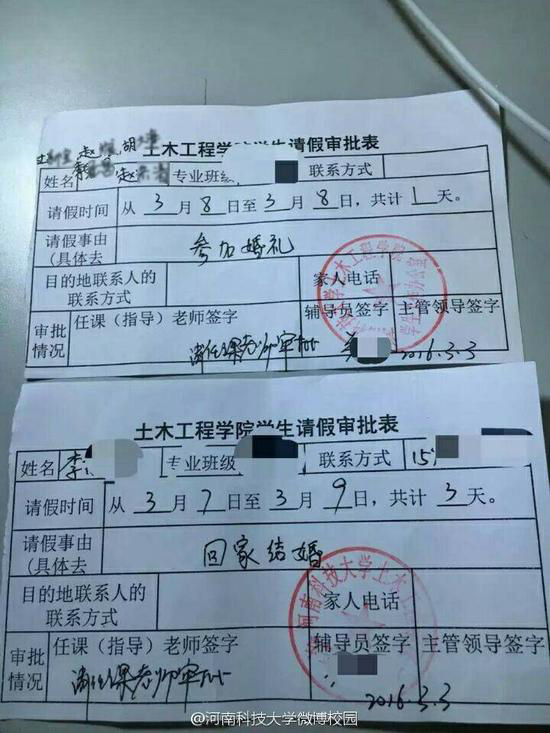 赵 胡
土木工程学院学生请假审批表
姓名 赵 专业班级 联系方式
请假时间 从 3 月 8 日至 3 月 8 日,共计 1 天。
请假事由
(具体去 参加婚礼
目的地联系人的
联系方式 家人电话
审批
情况 任课(指导)老师签字 辅导员签字 主管领导签字
请任课老师审批 2016.3.3
土木工程学院
土木工程学院学生请假审批表
姓名 李 专业班级 联系方式 15
请假时间 从 3 月 7 日至 3 月 9 日,共计 3 天。
请假事由
(具体去 回家结婚
目的地联系人的
联系方式 家人电话
审批
情况 任课(指导)老师签字 辅导员签字 主管领导签字
请任课老师审批 2016.3.3
河南科技大学土木工
@河南科技大学微博校园